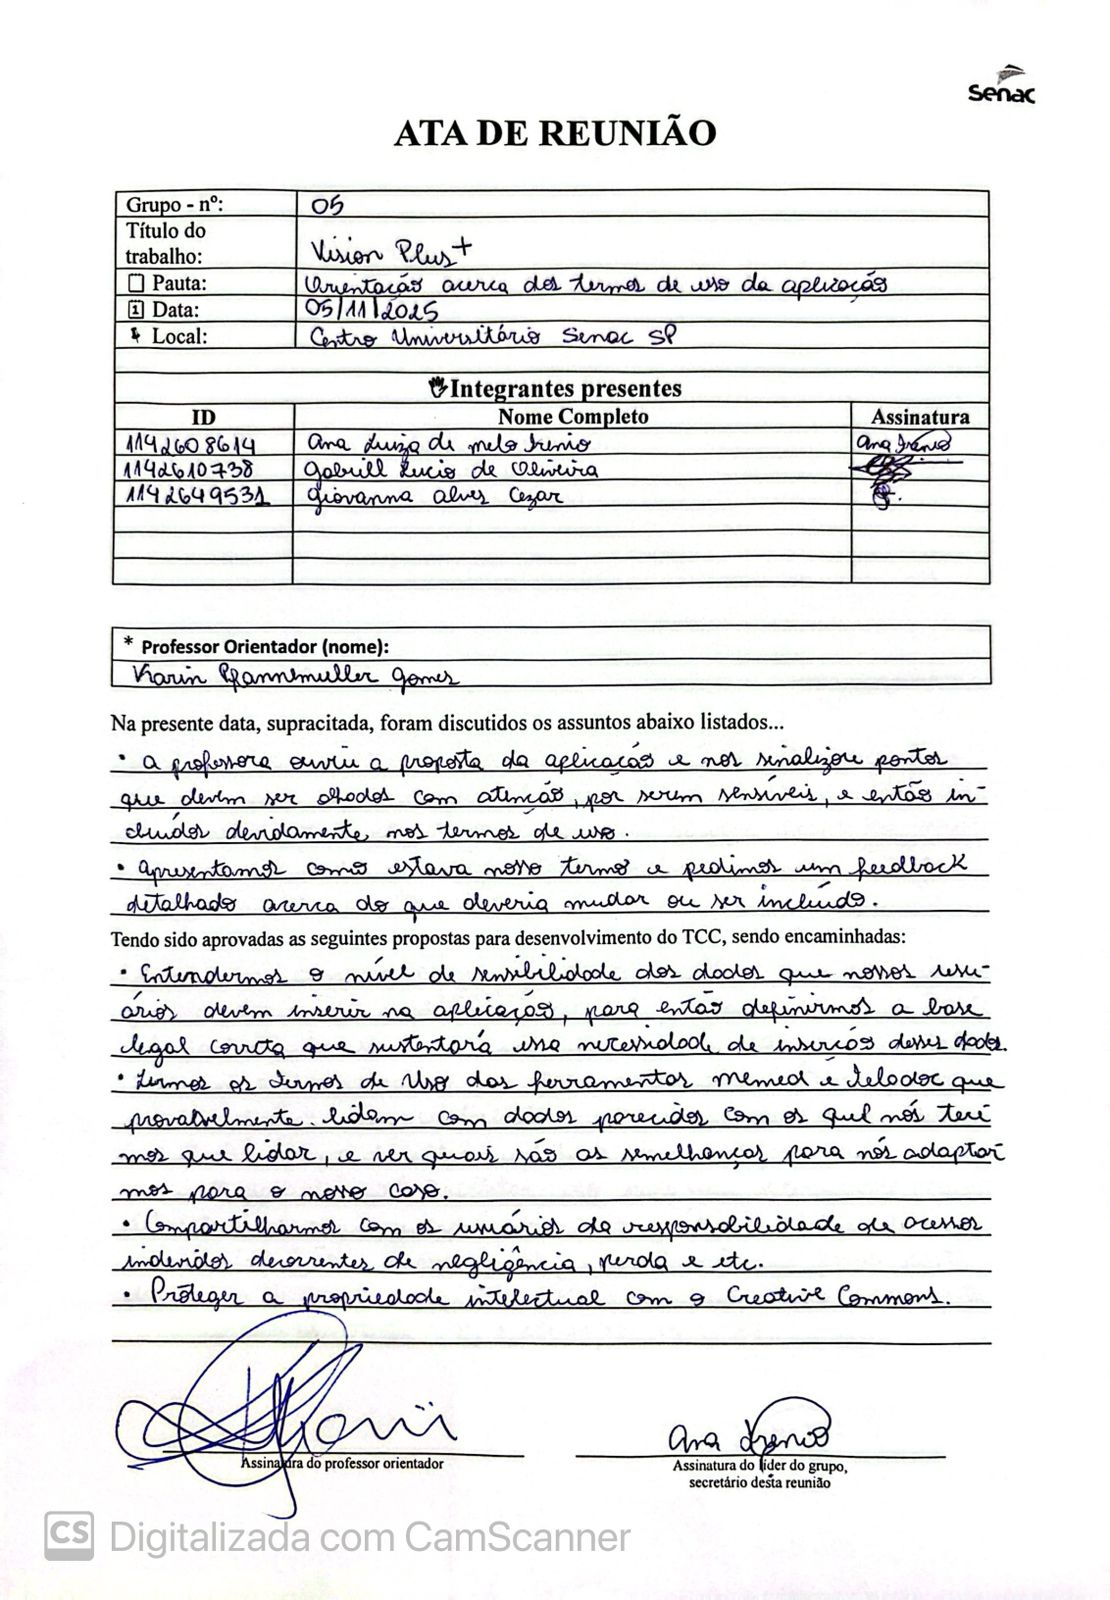 Senac
ATA DE REUNIÃO
Grupo - nº: 05
Título do
trabalho: Vision Plus+
Pauta: Orientação acerca dos termos de uso da aplicação
Data: 05/11/2025
Local: Centro Universitário Senac SP
Integrantes presentes
ID Nome Completo Assinatura
1142608614 Ana Luiza de melo Irenio Ana Irenio
1142610738 Gabriell Lucio de Oliveira
1142649531 Giovanna Alves Cezar
* Professor Orientador (nome):
Karin Pfannemuller Gomes
Na presente data, supracitada, foram discutidos os assuntos abaixo listados...
• A professora ouviu a proposta da aplicação e nos sinalizou pontos
que devem ser olhados com atenção, por serem sensíveis, e então in-
cluídos devidamente nos termos de uso.
• Apresentamos como estava nosso termo e pedimos um feedback
detalhado acerca do que deveria mudar ou ser incluído.
Tendo sido aprovadas as seguintes propostas para desenvolvimento do TCC, sendo encaminhadas:
• Entendermos o nível de sensibilidade dos dados que nossos usu-
ários devem inserir na aplicação, para então definirmos a base
legal correta que sustentará essa necessidade de inserção desses dados.
• Lermos os Termos de Uso das ferramentas memed e Teladoc que
provavelmente lidam com dados parecidos com os qual nós teri
mos que lidar, e ver quais são as semelhanças para nós adaptar
mos para o nosso caso.
• Compartilharmos com os usuários da responsabilidade de acessos
indevidos decorrentes de negligência, perda e etc.
• Proteger a propriedade intelectual com o Creative Commons.
Ana Irenio
Assinatura do professor orientador
Assinatura do líder do grupo,
secretário desta reunião
CS Digitalizada com CamScanner